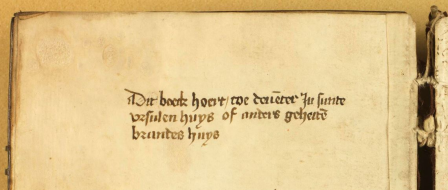 Dit boeck hoert / toe deuēter In sunte
vrsulen huys of anders geheitē
brandes huys